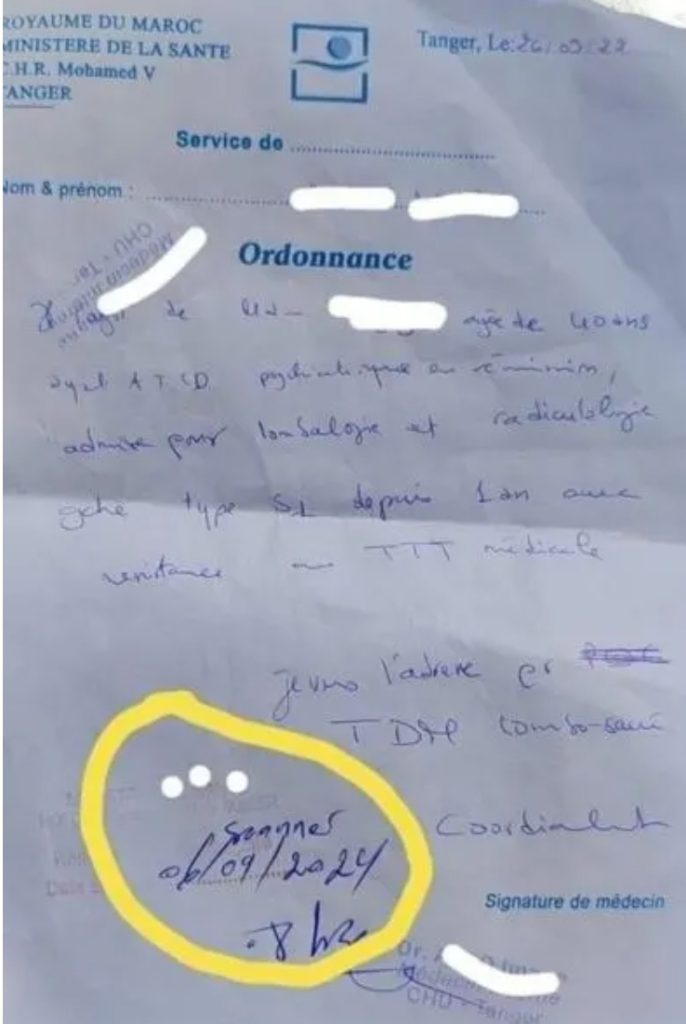 ROYAUME DU MAROC
MINISTERE DE LA SANTE
C.H.R. Mohamed V
TANGER
Tanger, Le:26/09/22
Service de
Nom & prénom :
CHU - Tan
Médecin
Ordonnance
de agée de 40 ans
ayt ATCD psychiatrique en rémission,
admise pour lombalgie et radiculalgie
gche type S1 depuis 1 an avec
résistance au TTT médicale
je vous l'adresse pr
TDM lombo-sacré
Cordialement
Scanner
06/09/2024
Signature de médecin
Dr.
Médecin
CHU - Tanger